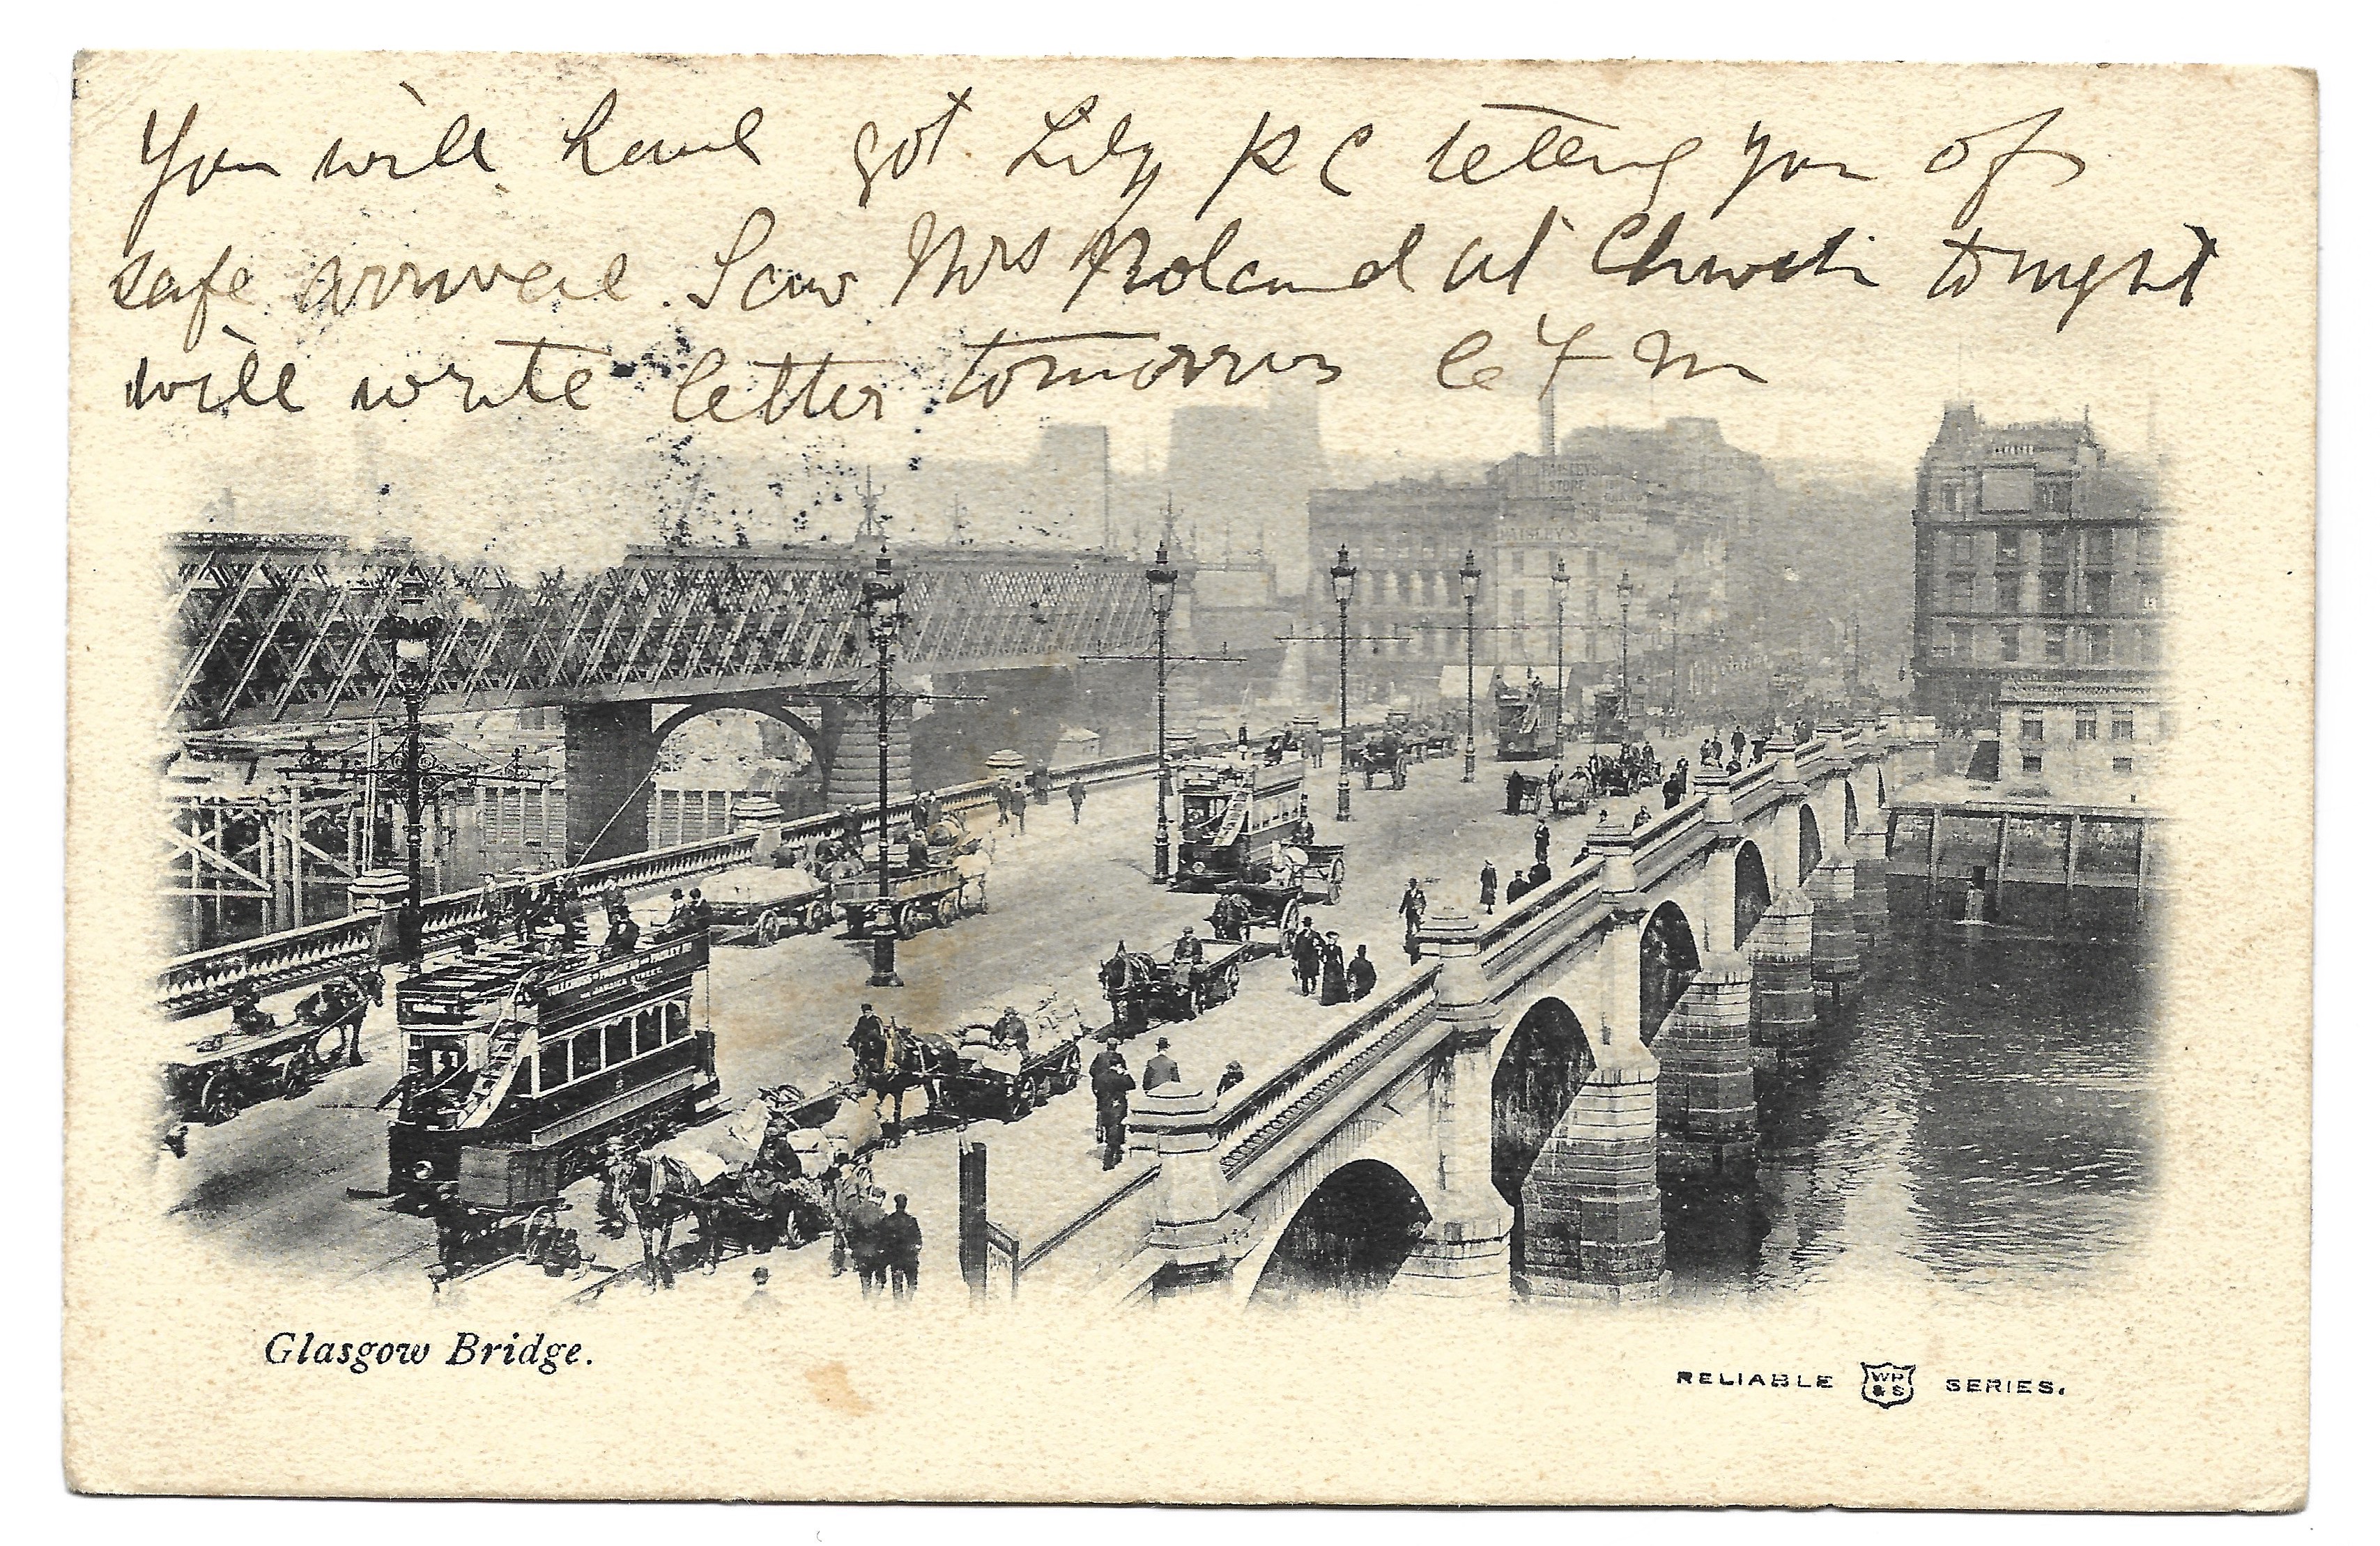 You will have got Lily PC telling you of
safe arrival. Saw Mrs Noland at Church tonight
will write letter tomorrow
PAISLEY'S
STORE
PAISLEY'S
TOLLCROSS PARKHEAD AND PAISLEY RD
VIA JAMAICA STREET.
Glasgow Bridge.
RELIABLE WR & S SERIES.